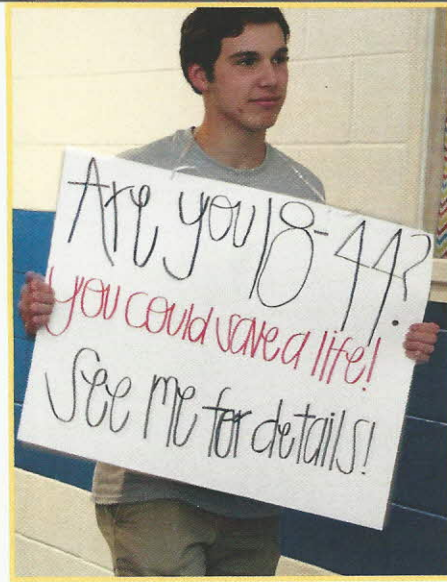 Are you 18-44?
you could save a life!
See me for details!